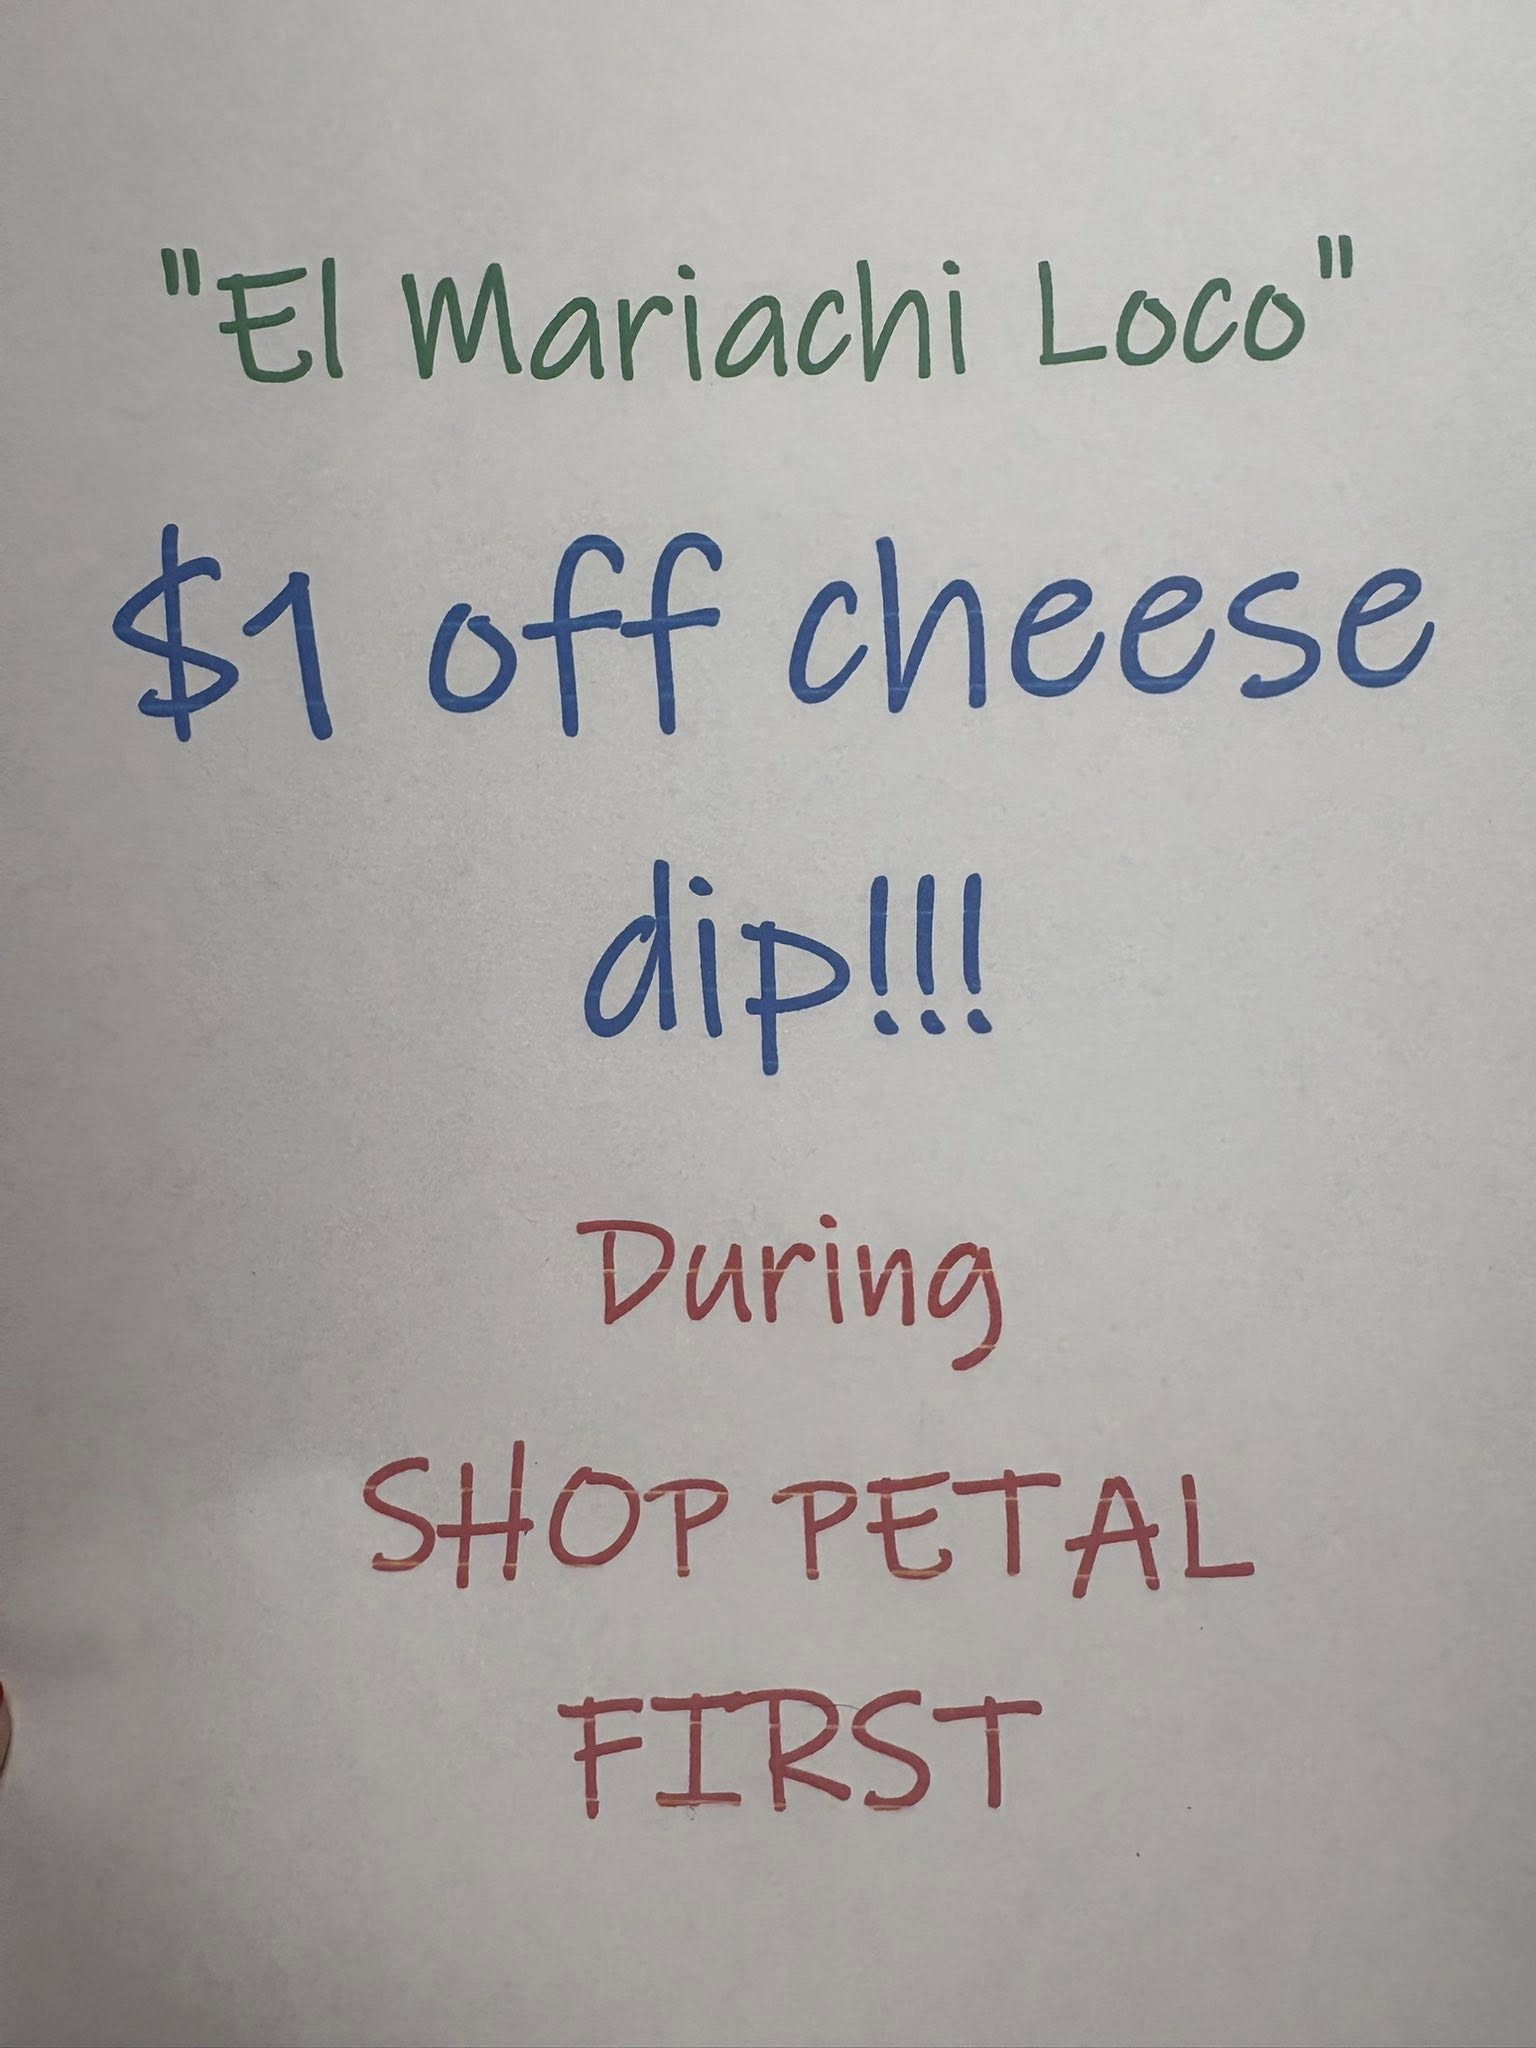 "El Mariachi Loco"
$1 off cheese
dip!!!
During
SHOP PETAL
FIRST